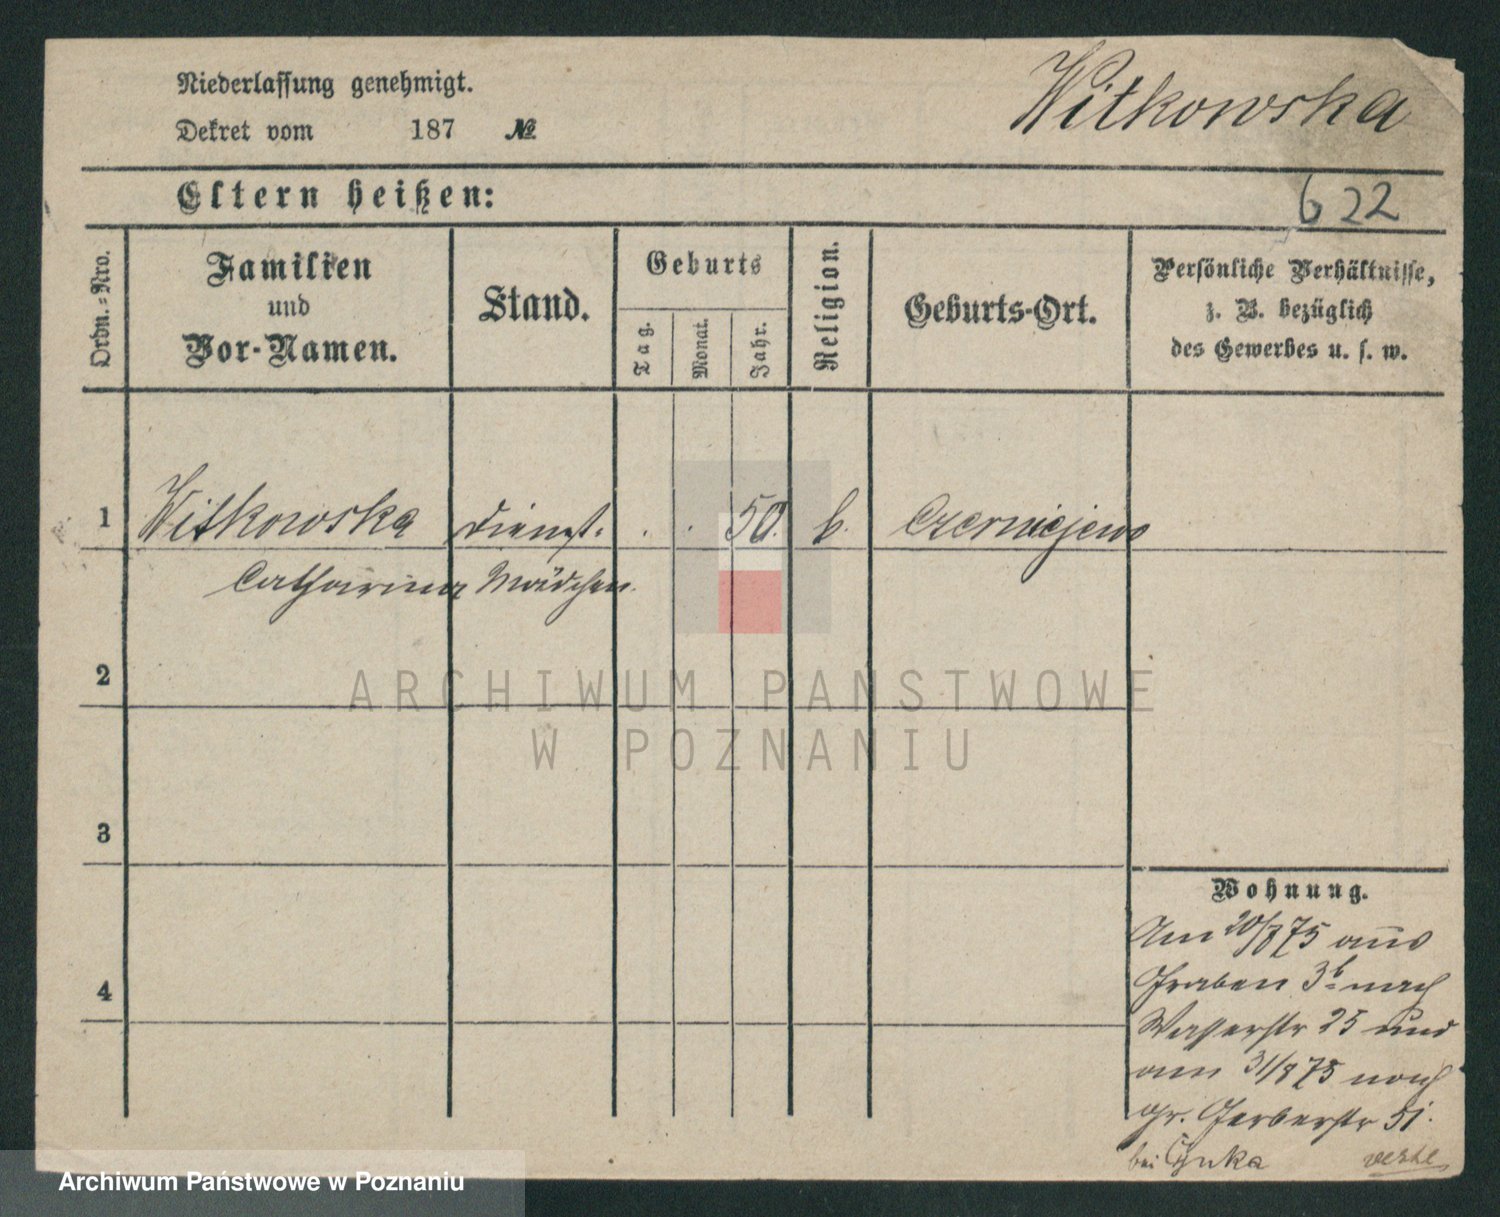 Niederlassung genehmigt.
Witkowska
Dekret vom 187 №
Eltern heißen:
622
Ordn.-Nro.
Familien
und
Vor-Namen.
Stand.
Geburts
Tag.
Monat.
Jahr.
Religion.
Geburts-Ort.
Persönliche Verhältnisse,
z. B. bezüglich
des Gewerbes u. s. w.
1 Witkowska Dienst. . . 50. k. Czerniejewo
Catharina Mädchen.
2
3
4
Wohnung.
Am 20/8 75 aus
Graben 3b nach
Wasserstr 25 und
am 31/8 75 nach
gr. Gerberstr 51.
bei
verte
ARCHIWUM PAŃSTWOWE
W POZNANIU
Archiwum Państwowe w Poznaniu